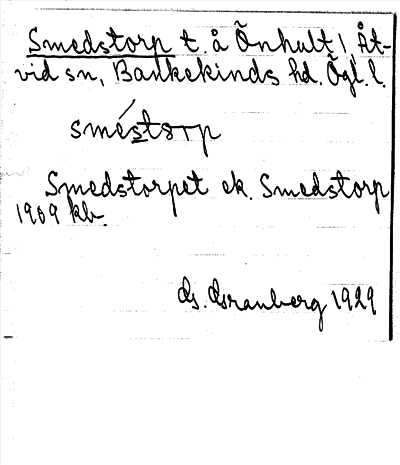 Smedstorp t. å Önhult 1, Åt-
vid sn, Bankekinds hd. Ögl. l.
sméstorp
Smedstorpet ek. Smedstorp
1909 kb.
G. Granberg 1929